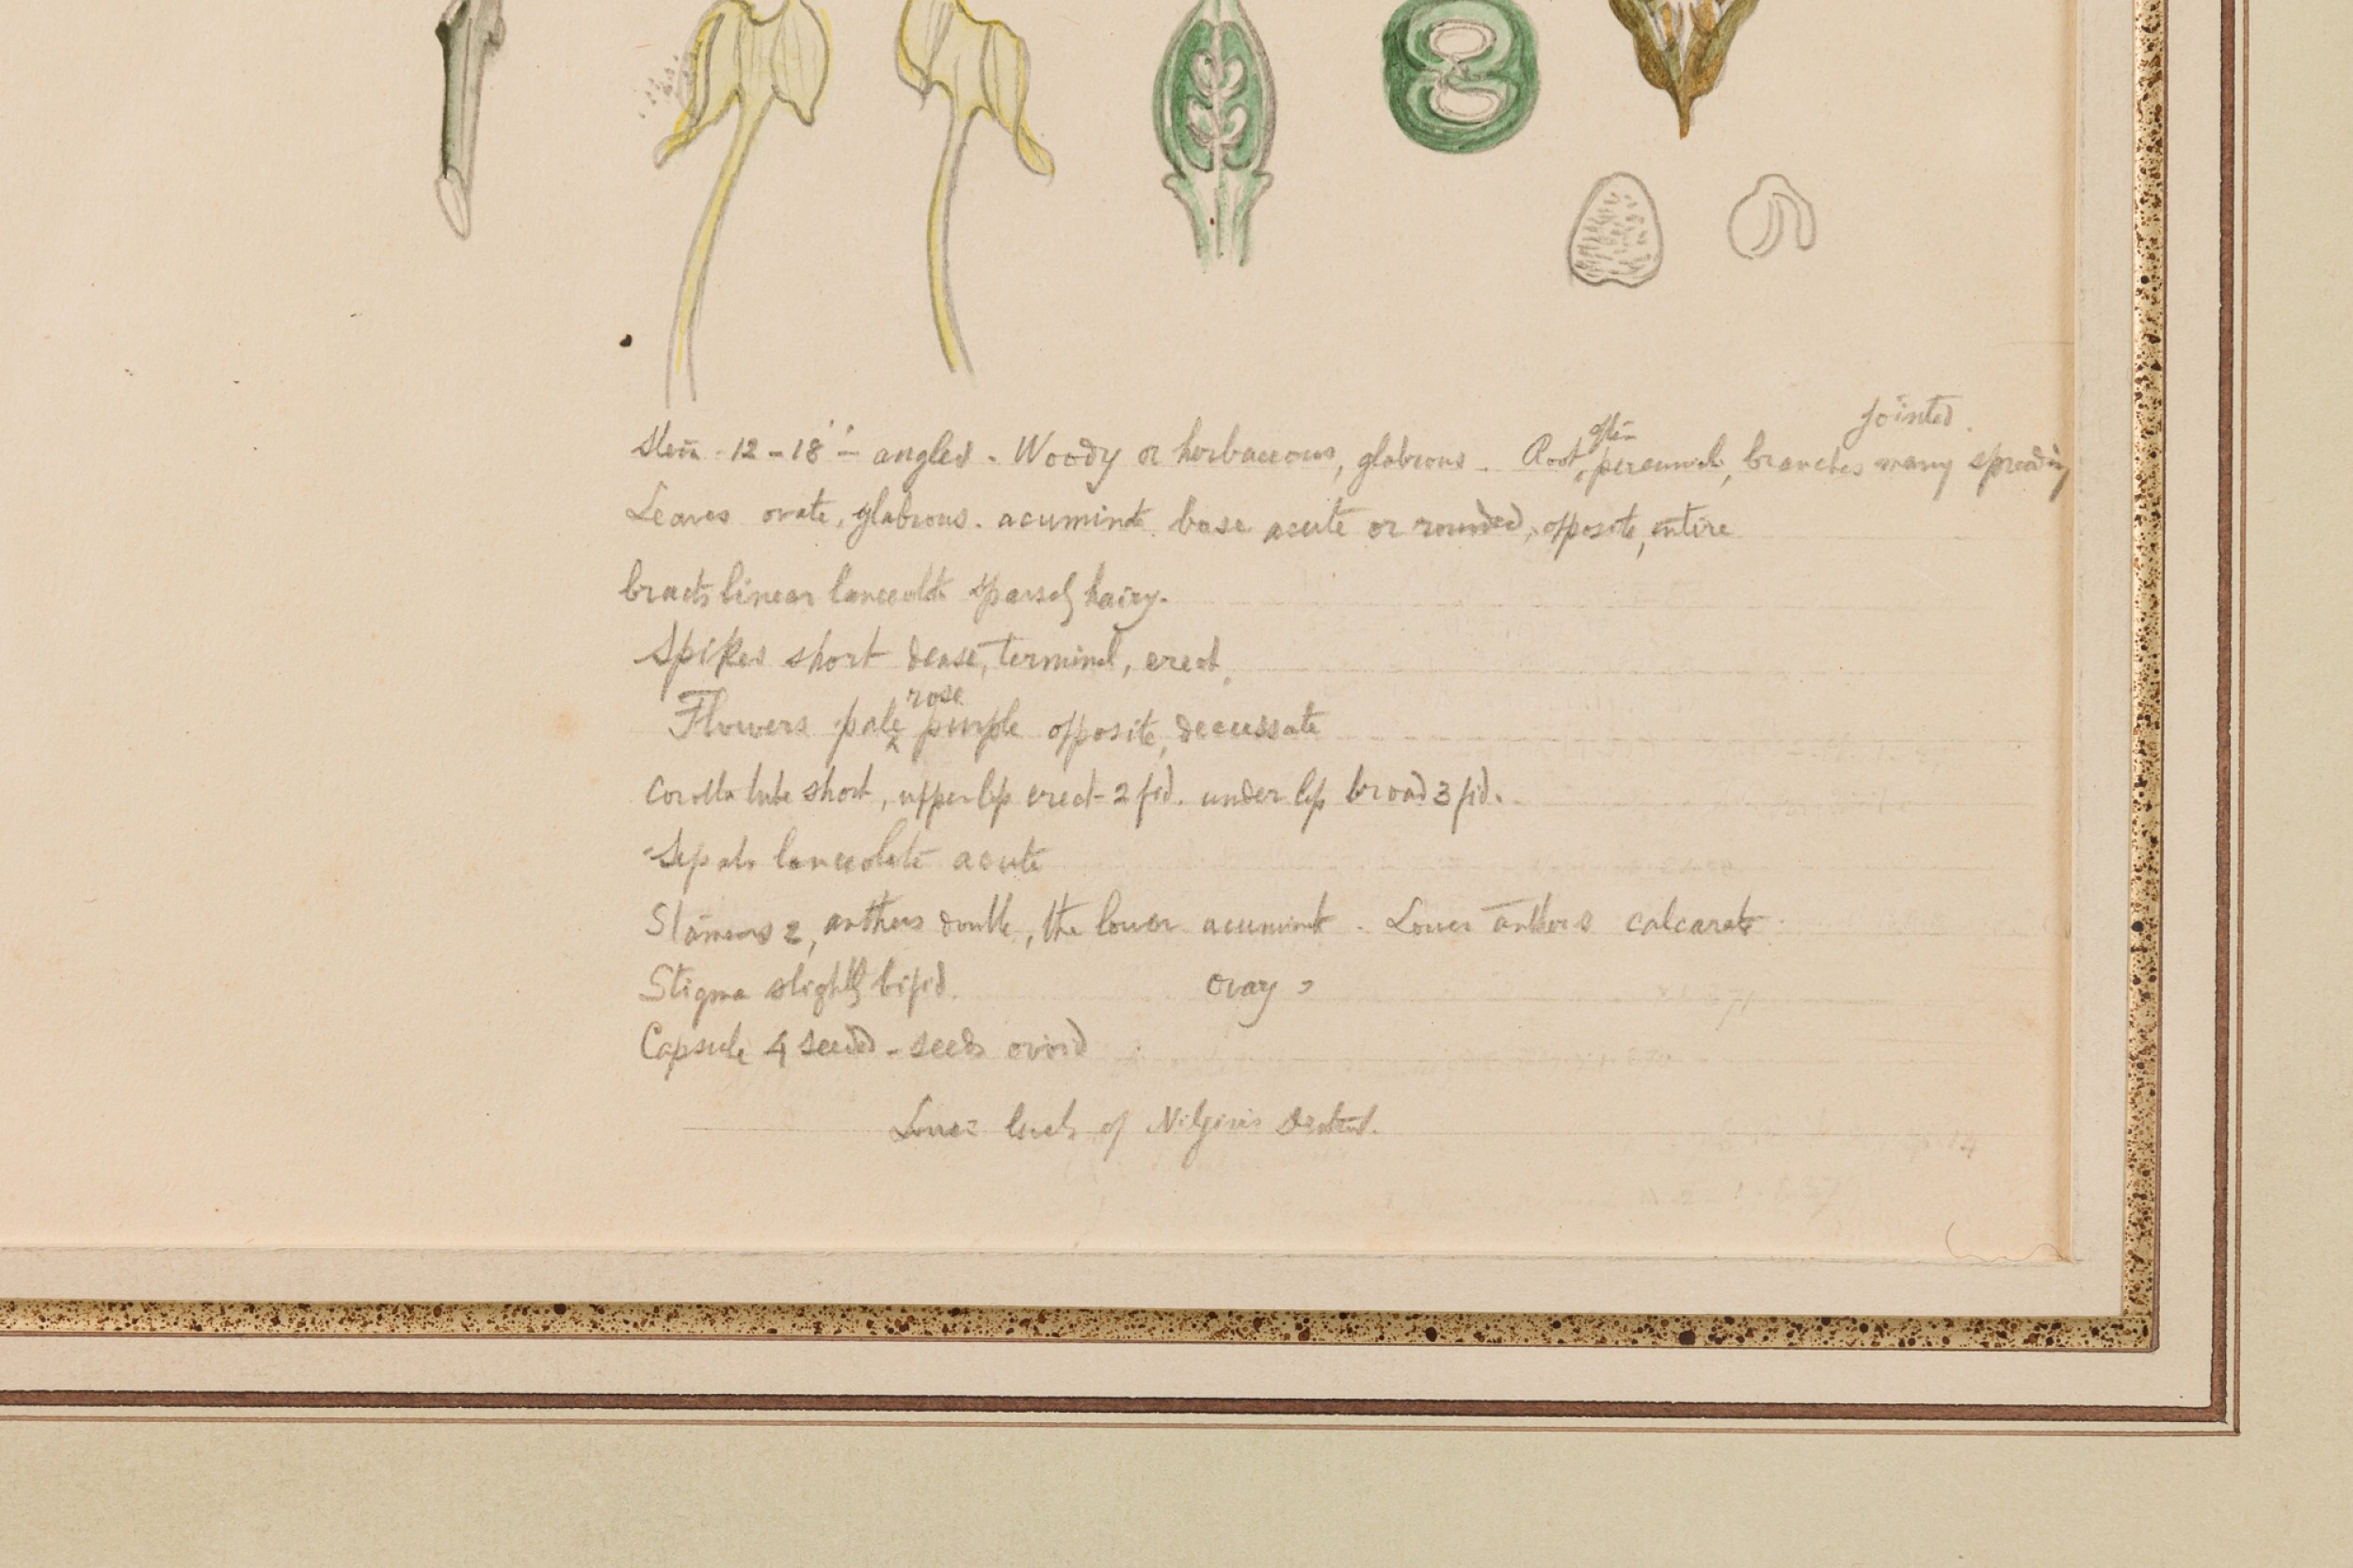 Stem - 12 - 18'' - angled - Woody or herbaceous, glabrous - Root, often perennial, branches many spreading jointed.
Leaves ovate, glabrous. acuminate. base acute or rounded, opposite, entire
bracts linear lanceolate sparsely hairy.
Spikes short dense, terminal, erect.
Flowers pale rose purple opposite, decussate
Corolla tube short, upper lip erect - 2 fid. under lip broad 3 fid.
Sepals lanceolate acute
Stamens 2, anthers double, the lower acuminate. Lower anthers calcarate.
Stigma slightly bifid. Ovary
Capsule 4 seeded - seeds ovoid
Lower levels of Nilgiris